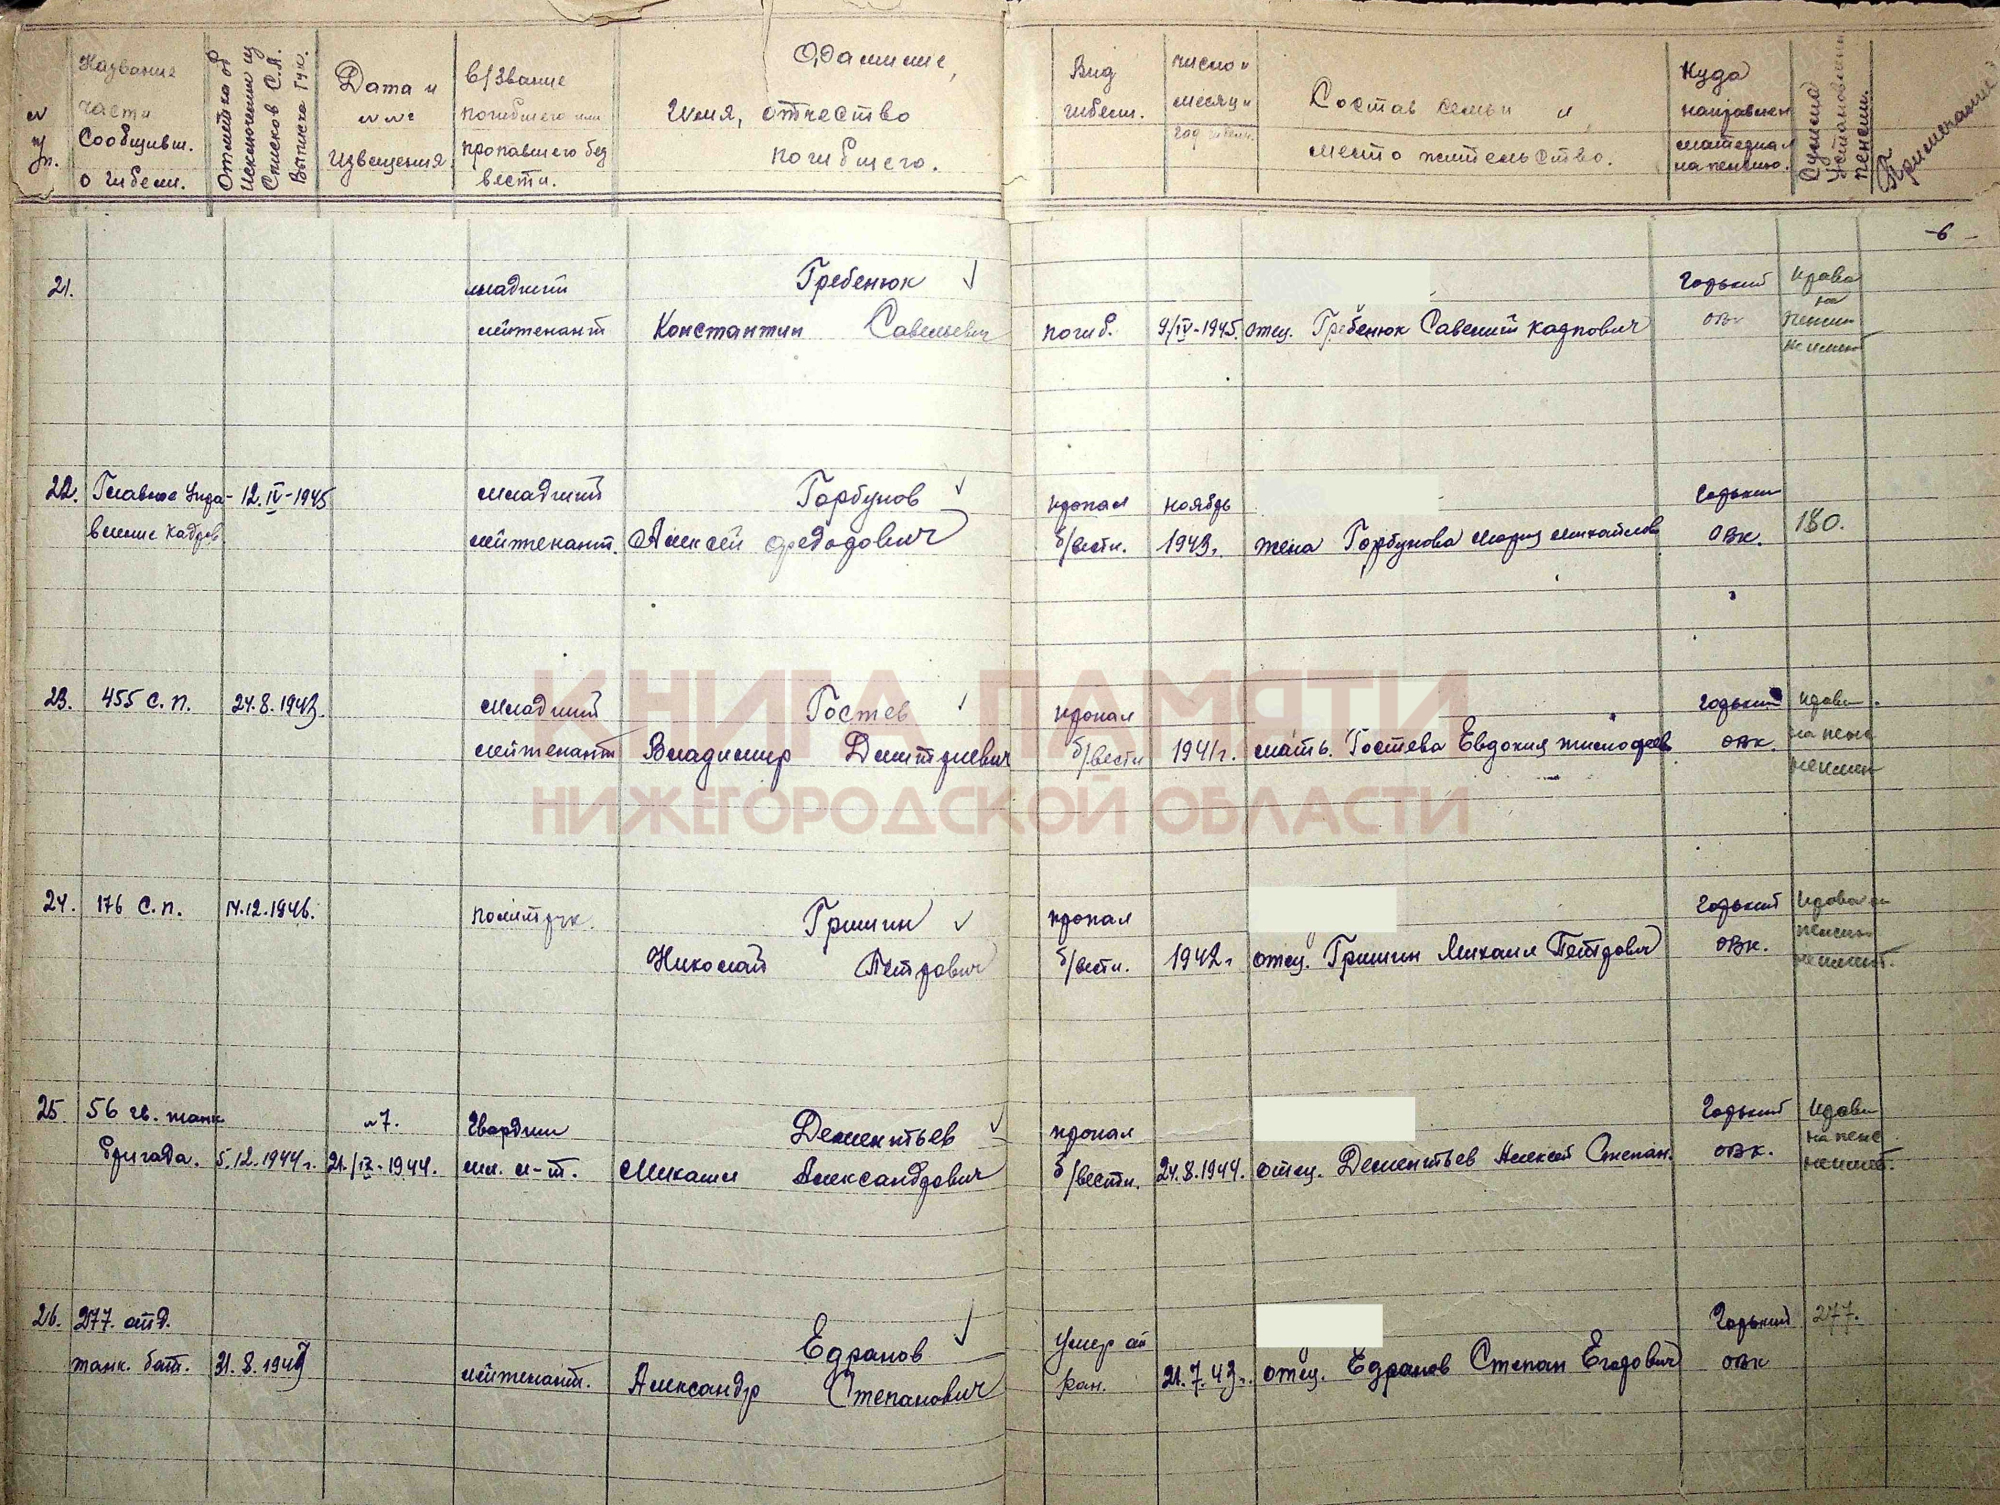 № п/п.
Название части Сообщивш. о гибели.
Отметка об исключении из Списков С.А. Выписка ГУК.
Дата и №№ извещения
в/звание погибшего или пропавшего без вести.
Фамилие, Имя, отчество погибшего.
Вид гибели.
число и месяц и год гибели.
Состав семьи и место жительство.
Куда направлен материал на пенсию.
Сумма установлен. пенсии.
Примечание
-6-
21.
младший Гребенюк Горький права
лейтенант Константин Савельевич погиб. 9/IV-1945. отец. Гребенюк Савелий Карпович ОВк на
пенсии
не имеет
22. Главное Упра- 12.IV-1945 младший Горбунов пропал ноябрь Горький
вление кадров лейтенант. Алексей Федорович б/вести. 1943г. жена Горбунова Мария Михайлов ОВк. 180.
23. 455 С.П. 24.8.1943. младший Гостев пропал Горький
лейтенант Владимир Дмитриевич б/вести 1941г. мать. Гостева Евдокия Тимофеев ОВк. на пенс
не имеет
КНИГА ПАМЯТИ
НИЖЕГОРОДСКОЙ ОБЛАСТИ
24. 176 С.П. 14.12.1946. политрук. Гришин пропал Горький
Николай Петрович б/вести. 1942г отец. Гришин Михаил Петрович ОВк. пенсию
не имеет.
25 56 гв. танк №7. Гвардии Дементьев пропал Горький
бригада. 5.12.1944г. 21/IX-1944. мл. л-т. Михаил Александрович б/вести. 24.8.1944. отец. Дементьев Алексей Степан. ОВк. на пенс
не имеет.
26. 277. отд. Едранов Умер от Горький 277.
танк. бат. 31.8.194 лейтенант. Александр Степанович ран. 21.7.43г. отец. Едранов Степан Егорович ОВк